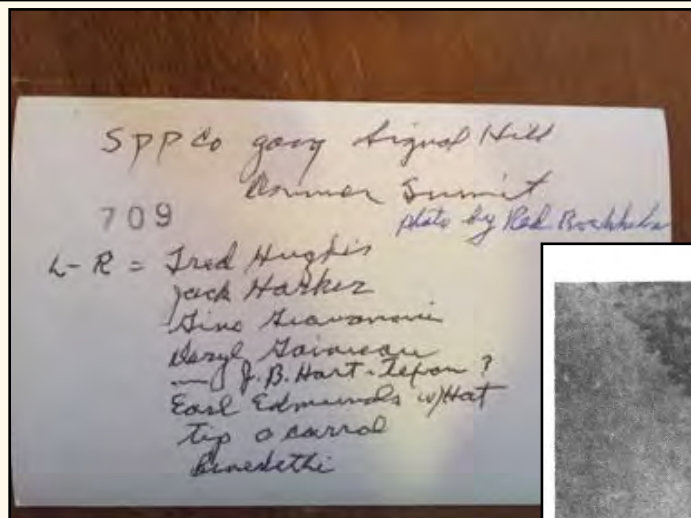 SPPCo gang Signal Hill
Donner Summit
709
photo by Red
L-R = Fred Hughes
Jack Harker
Gino
Deryl
J.B. Hart-Tefon ?
Earl Edmunds w/Hat
tip o carrol
Benedethi